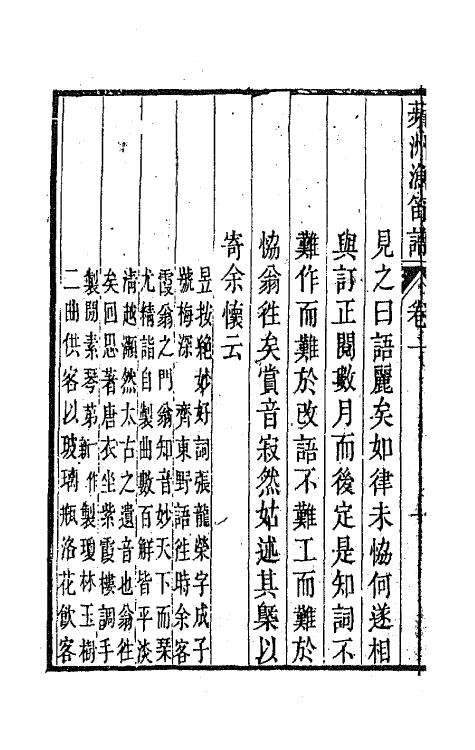 蘋洲漁笛譜
卷一
見之曰語麗矣如律未恊何遂相
與訂正閱數月而後定是知詞不
難作而難於改語不難工而難於
恊翁徃矣賞音寂然姑述其槩以
寄余懷云
昱按絶妙好詞張龍榮字成子
號梅深　齊東野語徃時余客
霞翁之門翁知音妙天下而琹
尤精詣自製曲數百觧皆平淡
清越灝然太古之遺音也翁徃
矣回思著唐衣坐紫霞樓調手
製閒素琴第新作製瓊林玉樹
二曲供客以玻璃瓶洛花飲客